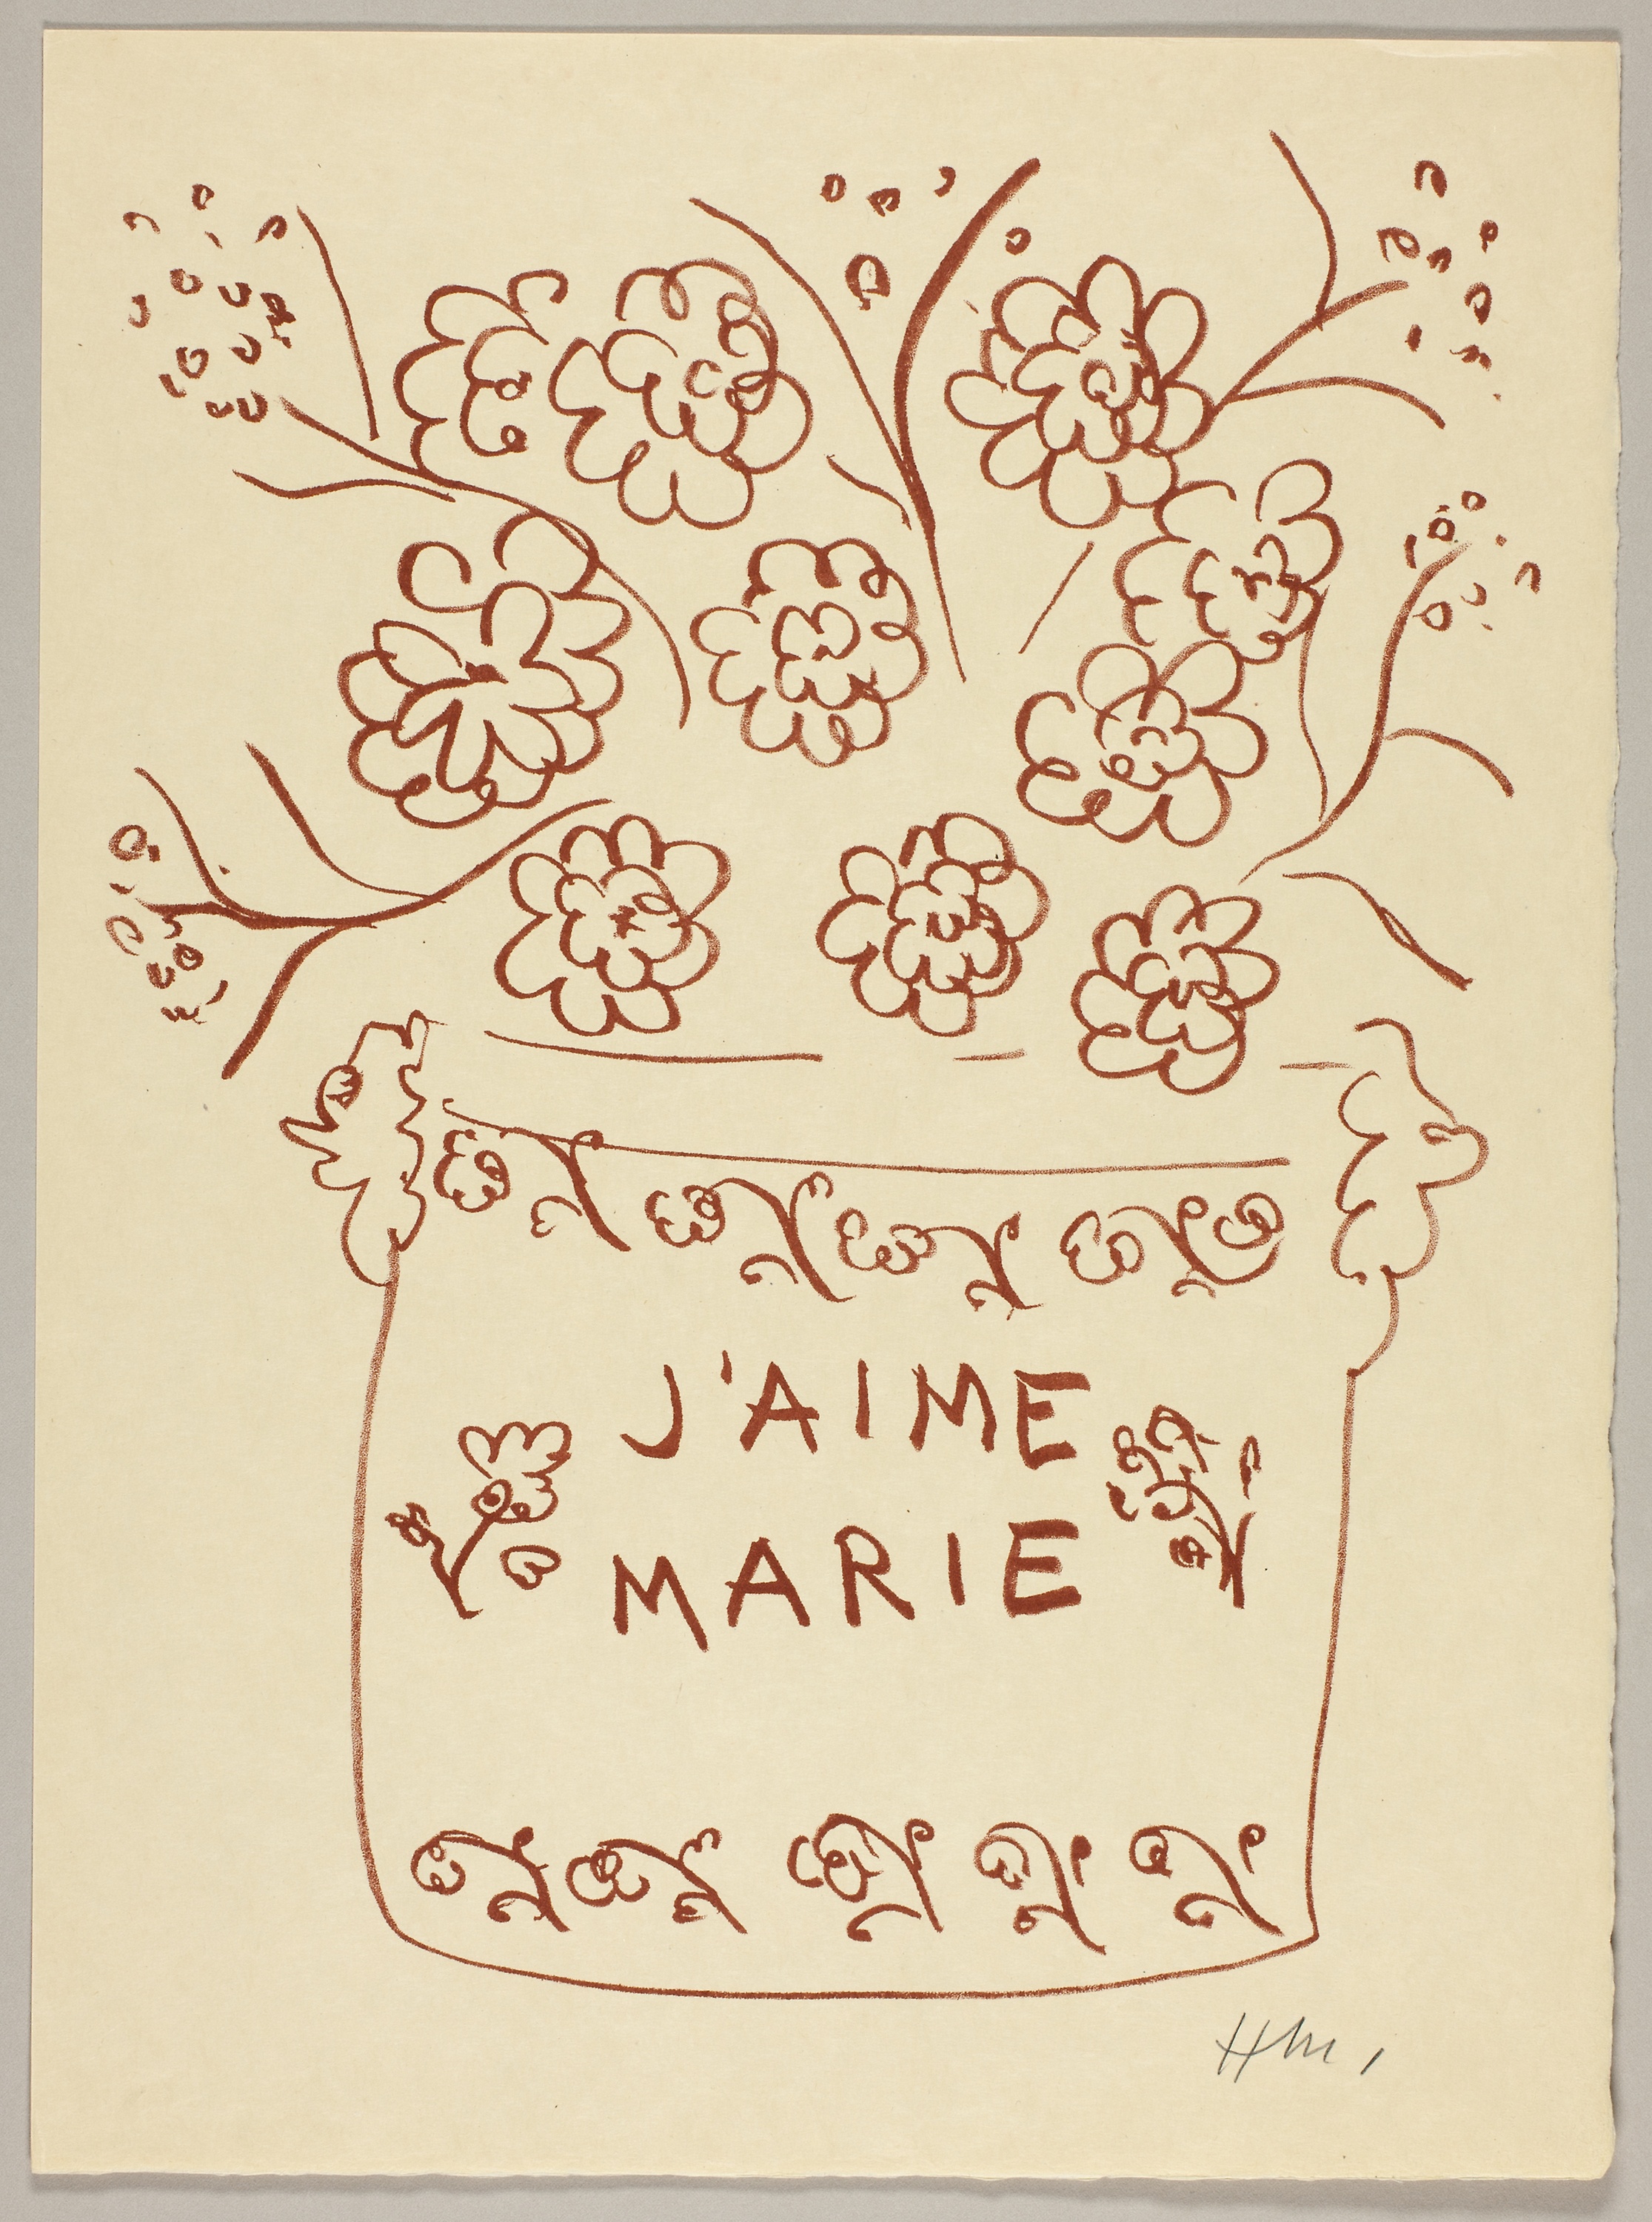 J'AIME
MARIE
HM.